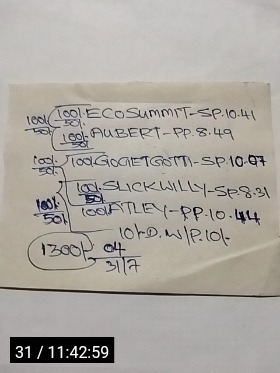 100/- 100/- ECOSUMMIT-SP.10.41
50/- 50/-
100/- 100/- AUBERT-PP.8.49
50/-
100/- 100/- GOGETGOTTI-SP.10.07
50/-
100/- SLICKWILLY-SP.8.31
100/- 50/-
50/- 100/- ATLEY-PP.10.44
10/-D.W/P.10/-
1300/- 04
31/7
31 / 11:42:59